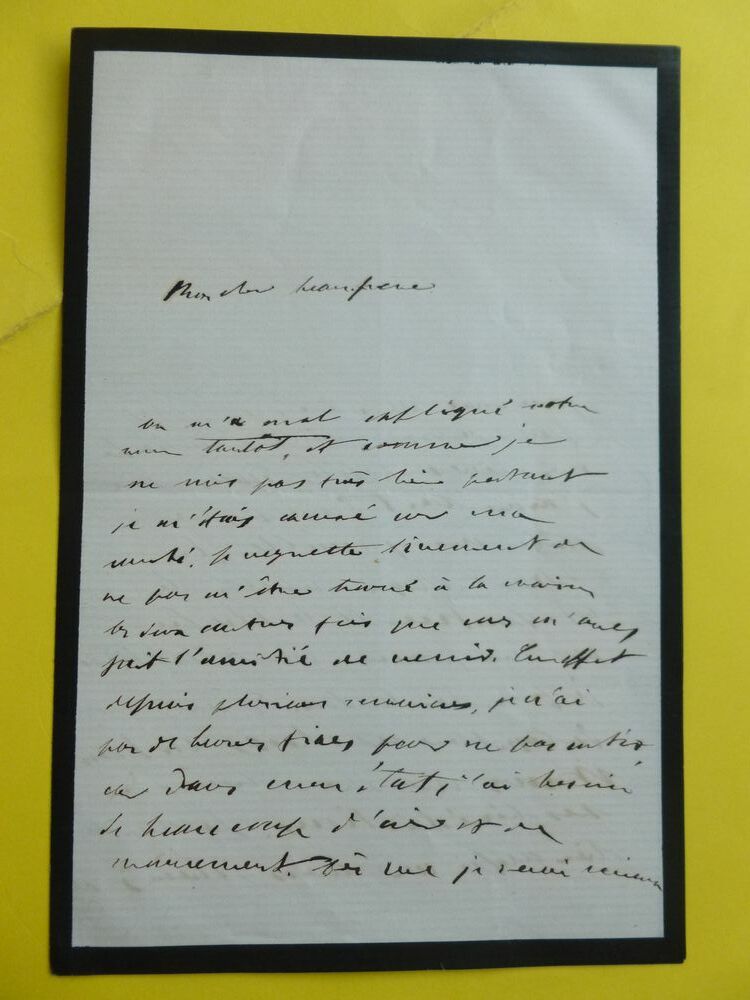 Mon cher beau frere
on m'a mal expliqué votre
tantôt, et comme je
ne suis pas très bien portant
je m'étais couché sur ma
santé. Je regrette vivement de
ne pas m'être trouvé à la maison
les deux autres fois que vous m'avez
fait l'amitié de venir. En effet
depuis plusieurs semaines, je n'ai
pas de heures fixes pour ne pas sortir
car dans mon état, j'ai besoin
de beaucoup d'air et de
mouvement. Dès que je serai mieux